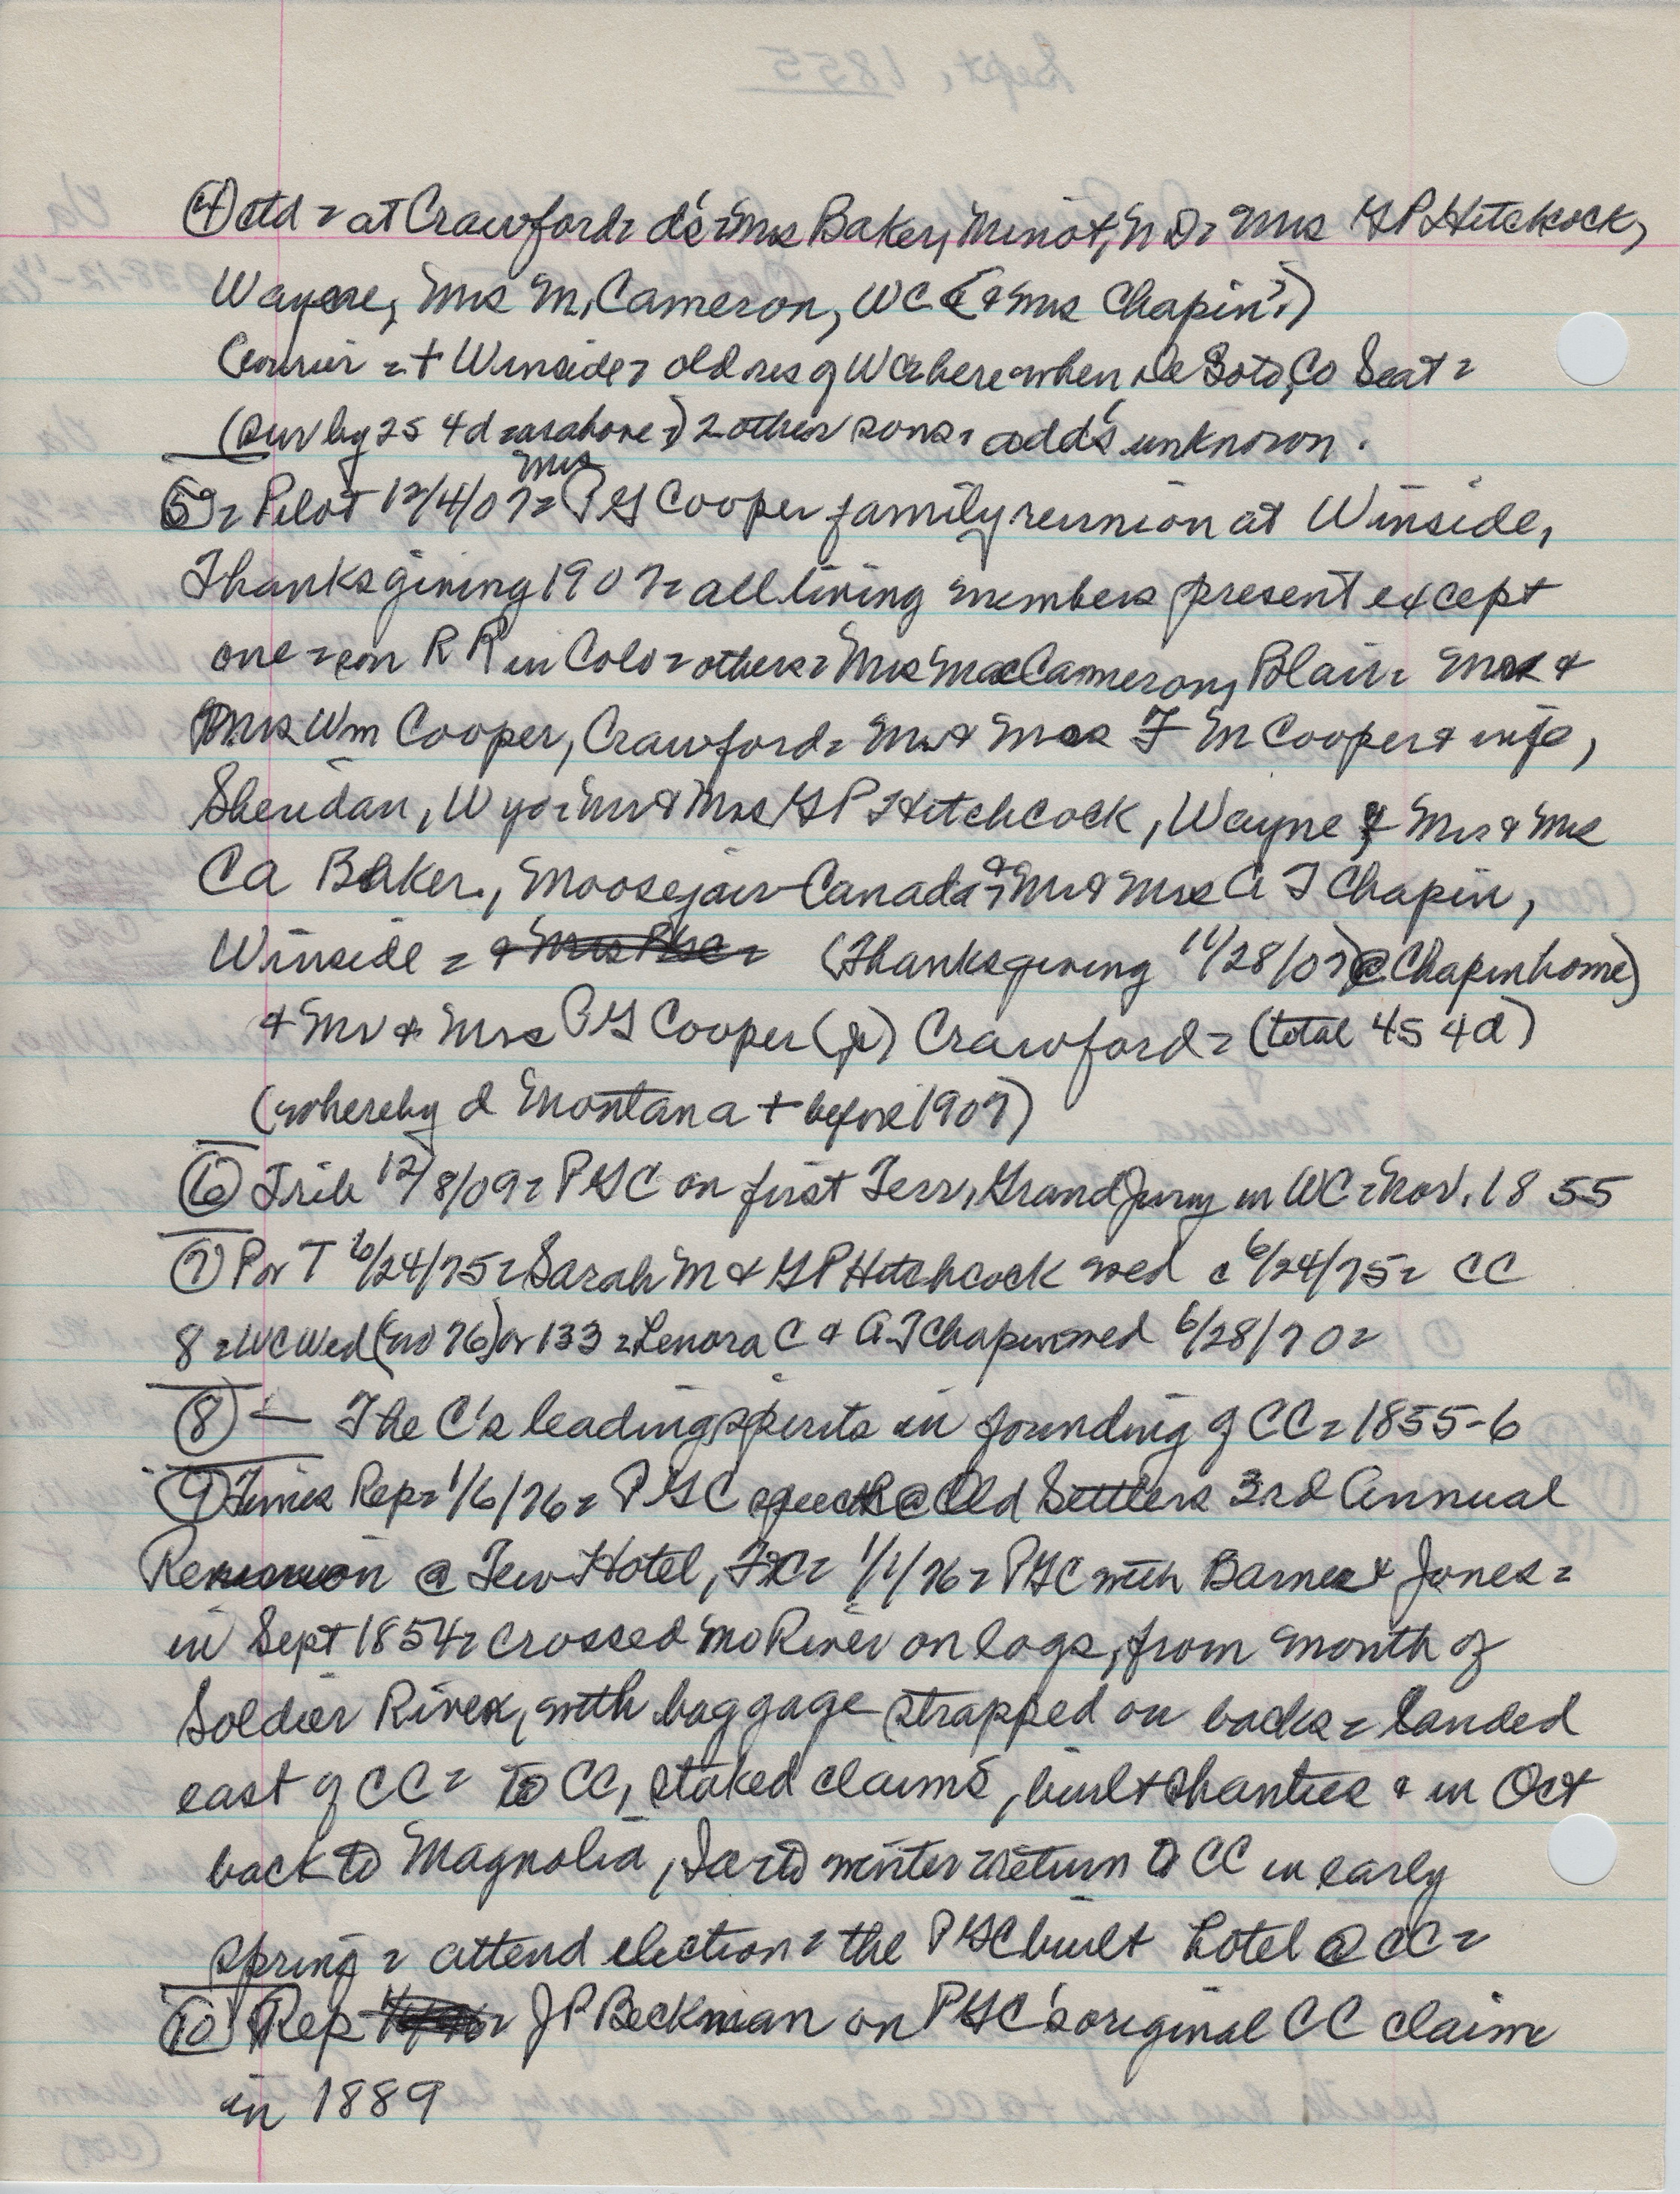 ④ ctd = at Crawford = d's = Mrs Baker, Minot, N D = Mrs G P Hitchcock,
Wayne, Mrs M. Cameron, WC (& Mrs Chapin?)
Courier = + Winside = old res of WC = here when De Soto, Co Seat =
(surv by 2s 4d = as above =) 2 other sons = add's unknown.
⑤ = Pilot 12/4/07 = Mrs P G Cooper family reunion at Winside,
Thanksgiving 1907 = all living members present except
one = son R R in Colo = others = Mrs Mae Cameron, Blair = Mr &
Mrs Wm Cooper, Crawford = Mr & Mrs F M Cooper & wife,
Sheridan, Wyo = Mr & Mrs G P Hitchcock, Wayne & Mr & Mrs
C A Baker, Moosejaw Canada = & Mr & Mrs A T Chapin,
Winside = (Thanksgiving 11/28/07 @ Chapin home)
& Mr & Mrs P G Cooper (jr) Crawford = (total 4s 4d)
(whereby d Montana + before 1907)
⑥ Trib 12/8/09 = PGC on first Terr, Grand Jury in WC = Nov. 1855
⑦ Por T 6/24/75 = Sarah M & G P Hitchcock wed c 6/24/75 = CC
8 = WC Wed (no 76) or 133 = Lenora C & A T Chapin wed 6/28/70 =
⑧ — The C's leading spirits in founding of CC = 1855-6
⑨ Times Rep = 1/6/76 = PGC speech @ Old Settlers 3rd Annual
Reunion @ Tew Hotel, FtC = 1/1/76 = PGC with Barnes & Jones =
in Sept 1854 = crossed Mo River on logs, from mouth of
Soldier River, with baggage strapped on backs = landed
east of CC = to CC, staked claims, built shanties & in Oct
back to Magnolia, Ia = to winter = return to CC in early
spring = attend election = the PGC built hotel @ CC =
⑩ Rep J P Beckman on PGC's original CC claim
in 1889